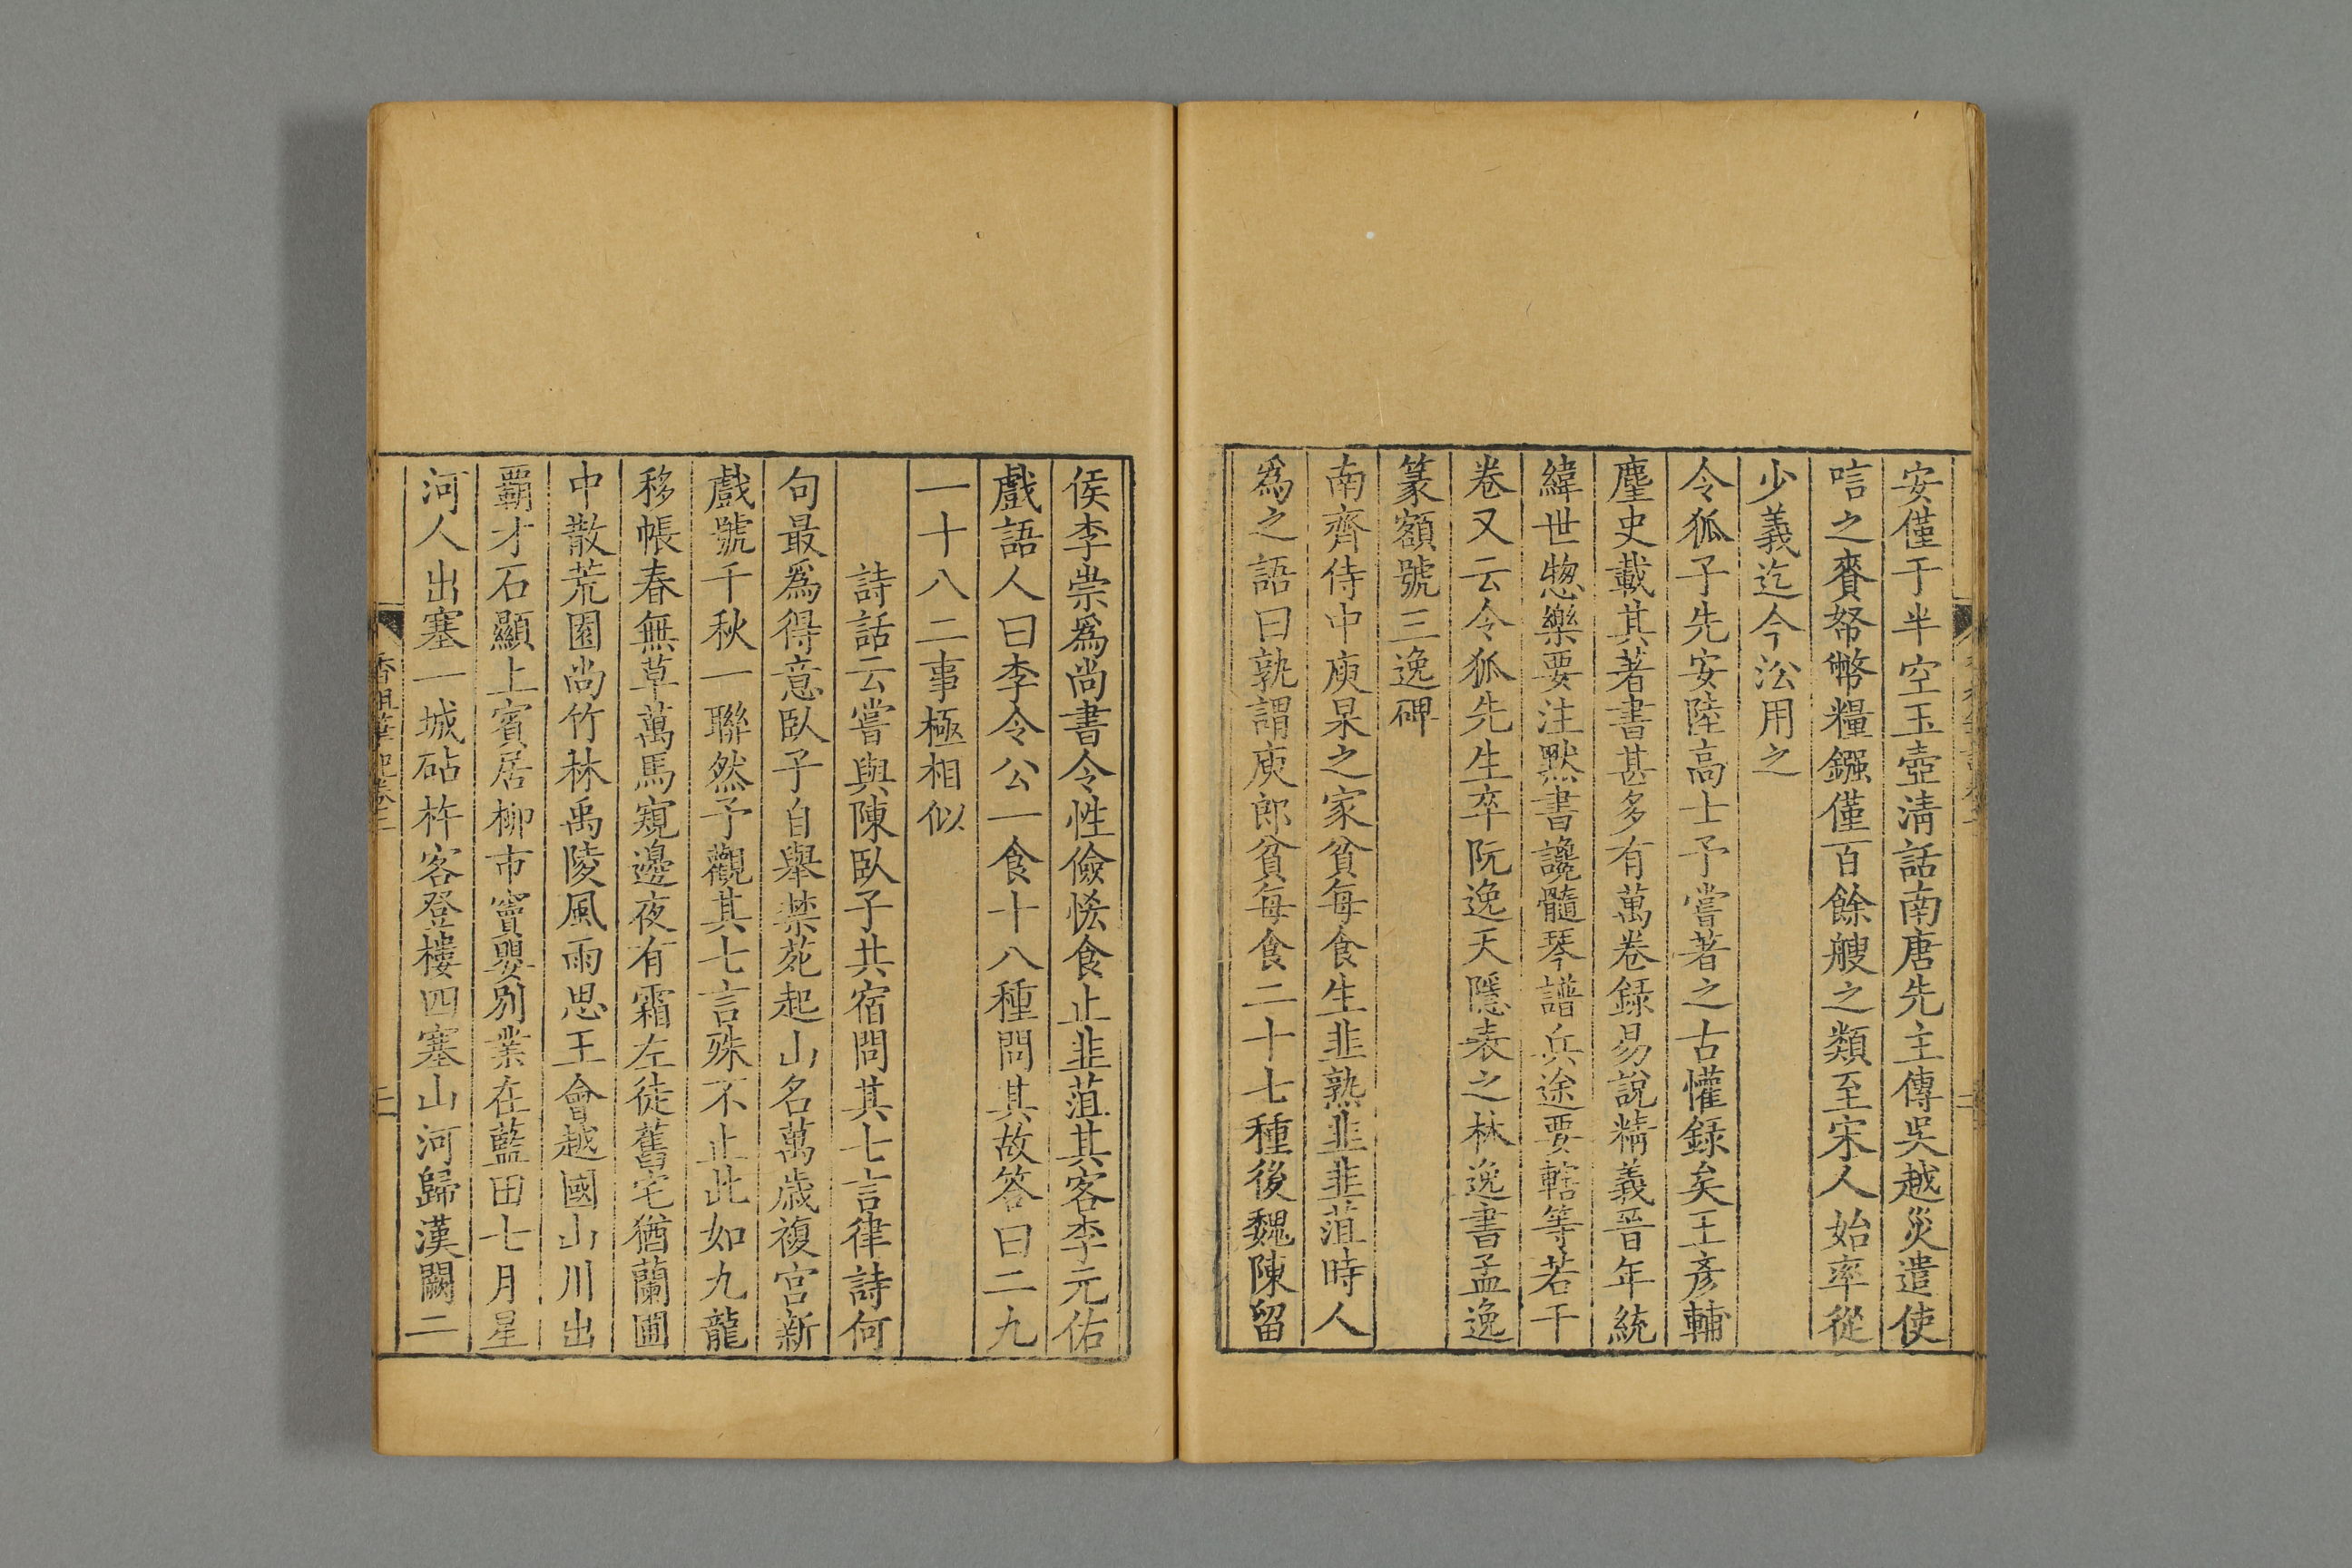 安僅于半空玉壺清話南唐先主傳吳越災遣使
唁之賫帑幣糧鏹僅百餘艘之類至宋人始率從
少義迄今沿用之
令狐子先安陸高士予嘗著之古懽録矣王彥輔
麈史載其著書甚多有萬卷録易說精義晉年統
緯世惣樂要注默書讒髓琴譜兵途要轄等若干
卷又云令狐先生卒阮逸天隱表之林逸書孟逸
篆額號三逸碑
南齊侍中庾杲之家貧每食生韭熟韭韭菹時人
爲之語曰孰謂庾郎貧每食二十七種後魏陳留
侯李崇爲尚書令性儉恡食止韭菹其客李元佑
戲語人曰李令公一食十八種問其故答曰二九
一十八二事極相似
詩話云嘗與陳臥子共宿問其七言律詩何
句最爲得意臥子自舉禁苑起山名萬歲複宮新
戲號千秋一聯然予觀其七言殊不止此如九龍
移帳春無草萬馬窺邊夜有霜左徒舊宅猶蘭圃
中散荒園尚竹林禹陵風雨思王會越國山川出
覇才石顯上賓居柳市竇嬰別業在藍田七月星
河人出塞一城砧杵客登樓四塞山河歸漢闕二
香祖筆記卷二